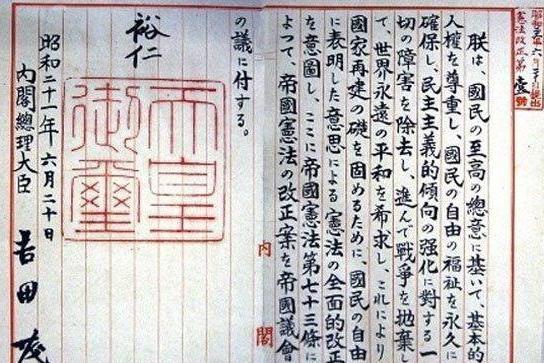 憲法改正第壹號
朕は、國民の至高の總意に基いて、基本的
人權を尊重し、國民の自由の福祉を永久に
確保し、民主主義的傾向の强化に對する一
切の障害を除去し、進んで戰爭を抛棄し
て、世界永遠の平和を希求し、これにより
國家再建の礎を固めるために、國民の自由
に表明した意思による憲法の全面的改正
を意圖し、ここに帝國憲法第七十三條に
よつて、帝國憲法の改正案を帝國議會
內閣
の議に付する。
裕仁
天皇
御璽
昭和二十一年六月二十日
內閣總理大臣 吉田茂